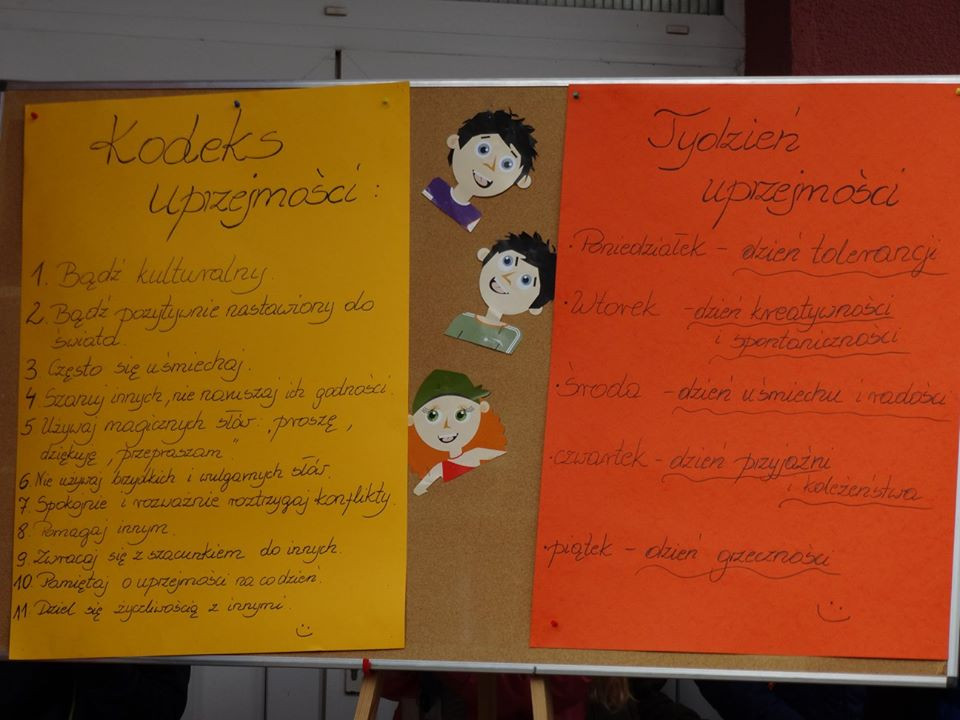 Kodeks
uprzejmości:
1. Bądź kulturalny.
2. Bądź pozytywnie nastawiony do
świata.
3 Często się uśmiechaj.
4 Szanuj innych, nie naruszaj ich godności.
5 Używaj magicznych słów: „proszę,
dziękuję, przepraszam"
6. Nie używaj brzydkich i wulgarnych słów.
7. Spokojnie i rozważnie roztrzygaj konflikty.
8. Pomagaj innym.
9. Zwracaj się z szacunkiem do innych.
10. Pamiętaj o uprzejmości na co dzień.
11. Dziel się życzliwością z innymi.
Tydzień
uprzejmości
• Poniedziałek - dzień tolerancji
• Wtorek - dzień kreatywności
i spontaniczności
• Środa - dzień uśmiechu i radości
• czwartek - dzień przyjaźni
i koleżeństwa
• piątek - dzień grzeczności